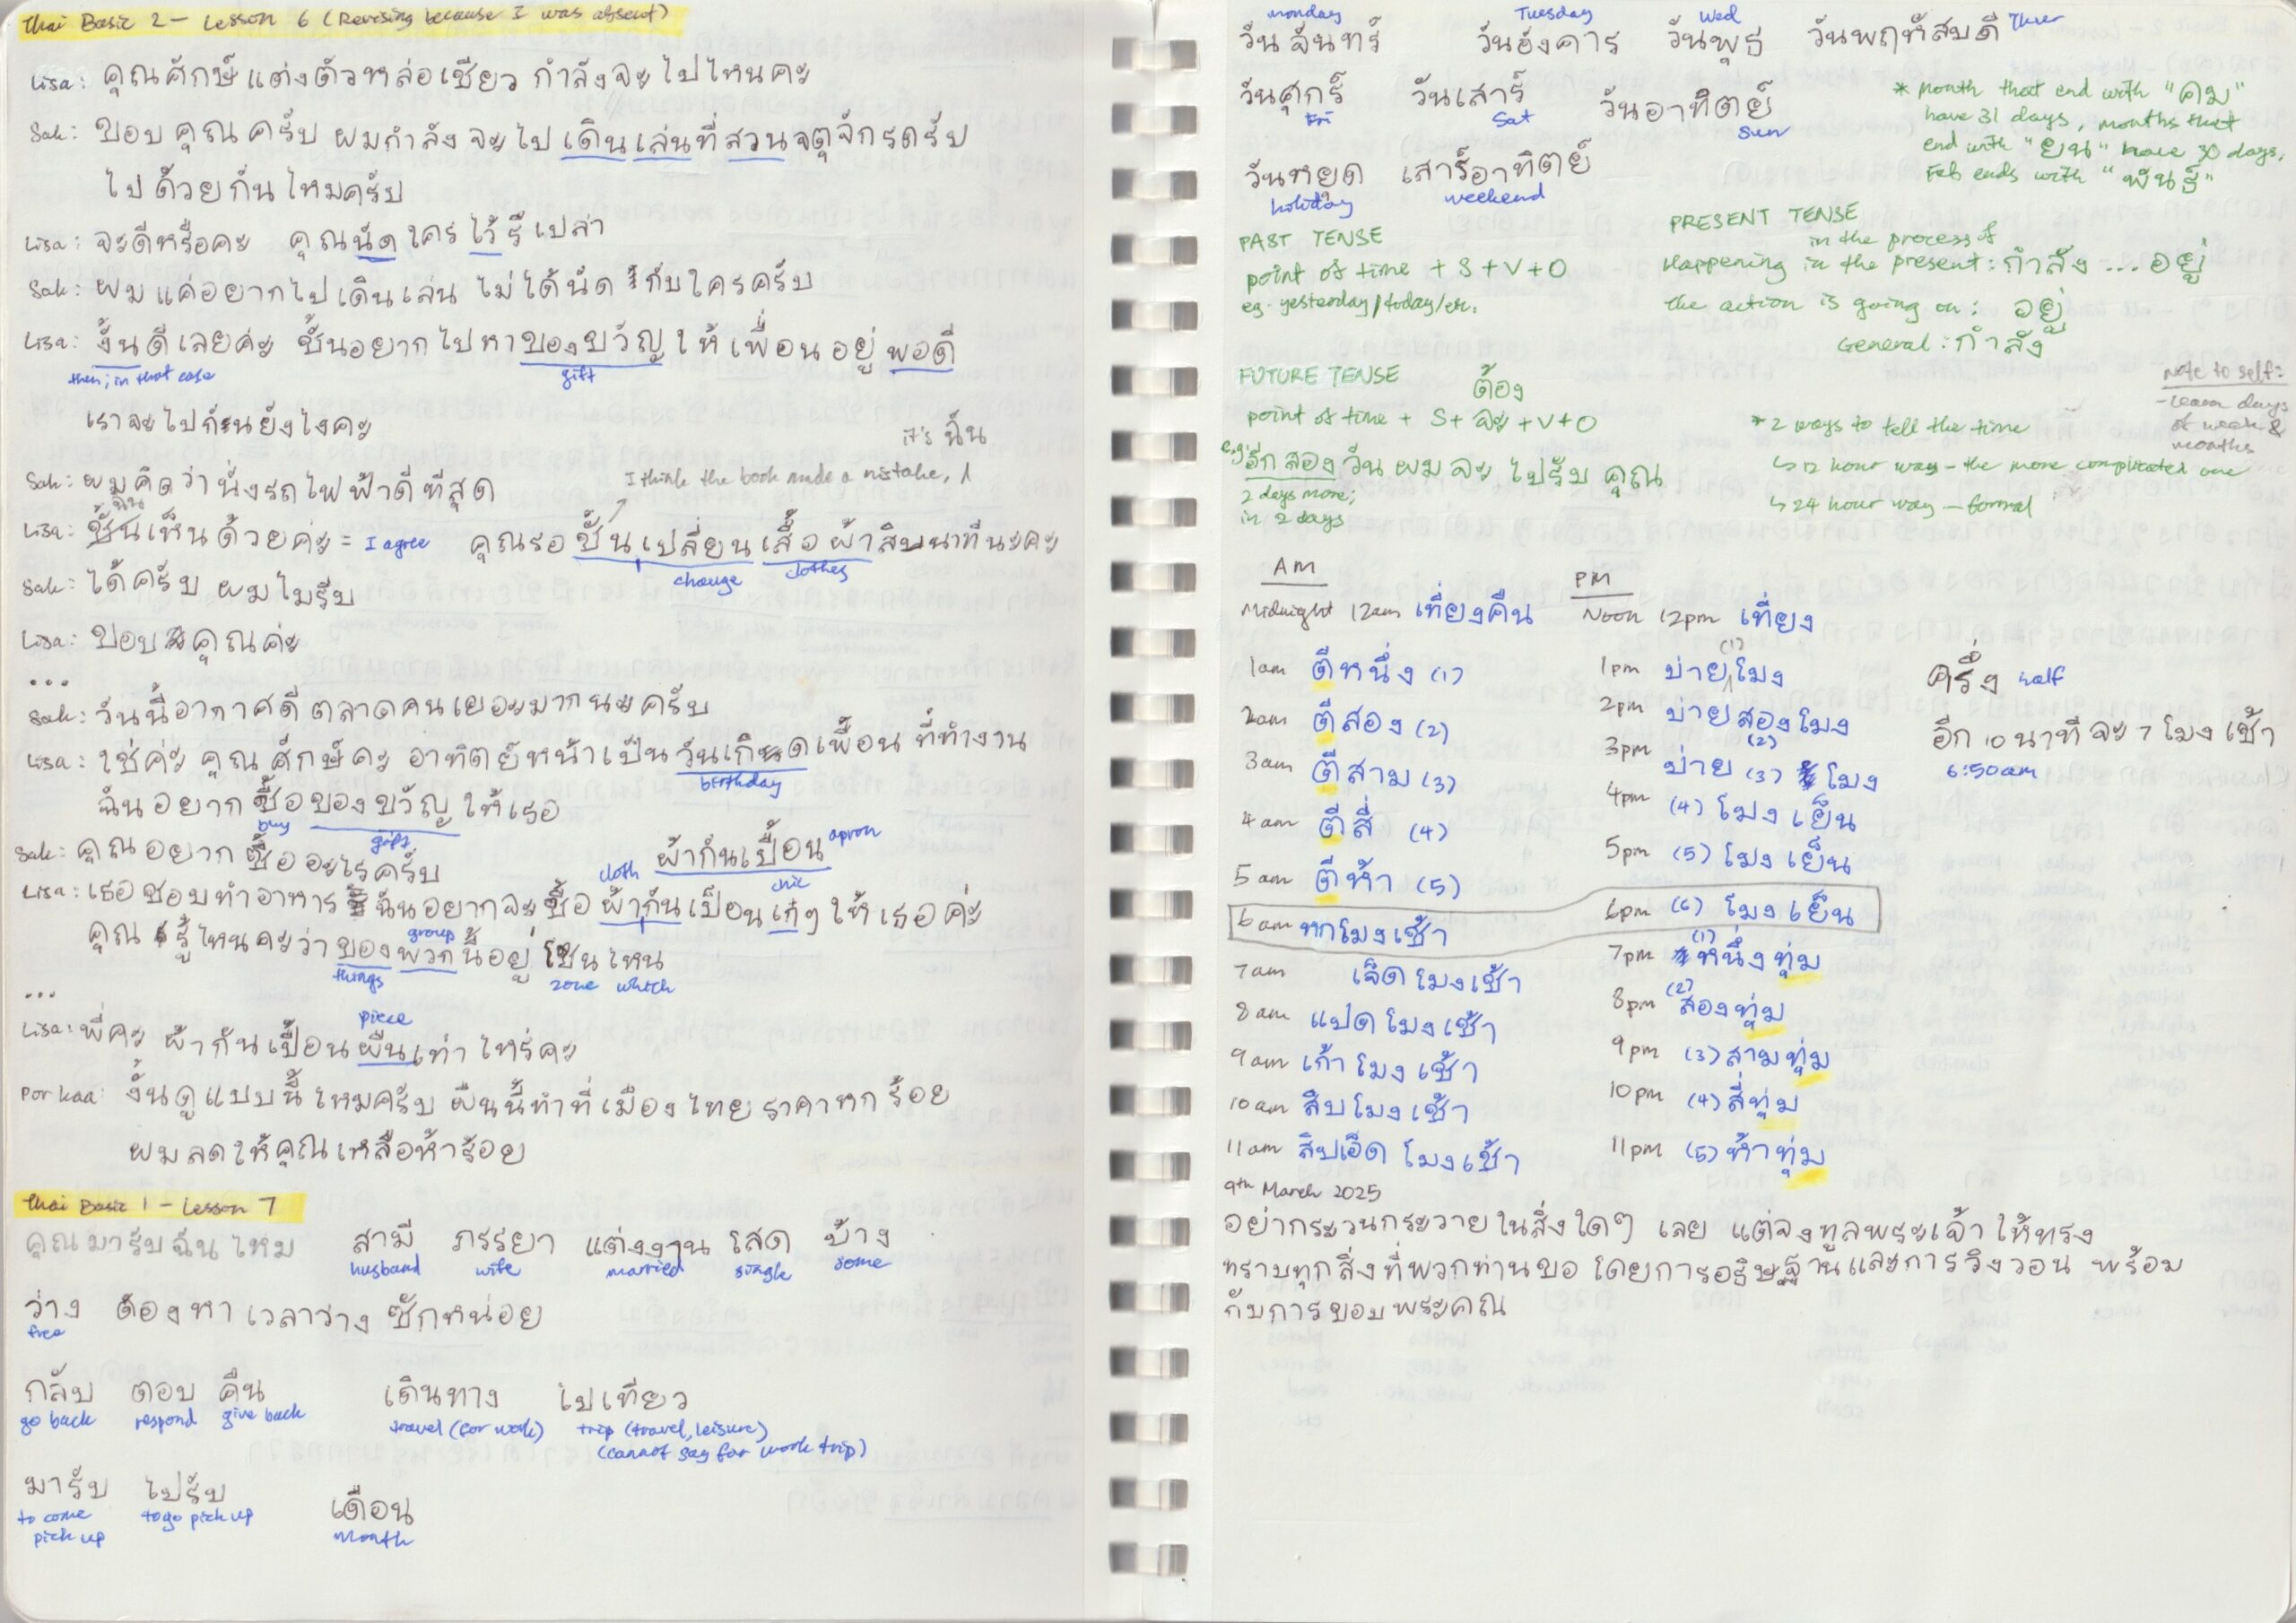 Thai Basic 2 - Lesson 6 (Revising because I was absent)
Lisa: คุณศักษ์ แต่งตัวหล่อเชียว กำลังจะไปไหนคะ
Sak: ขอบคุณครับ ผมกำลังจะไปเดินเล่นที่สวนจตุจักรครับ
ไปด้วยกันไหมครับ
Lisa: จะดีหรือคะ คุณนัดใครไว้รึเปล่า
Sak: ผมแค่อยากไปเดินเล่น ไม่ได้นัดกับใครครับ
Lisa: งั้นดีเลยค่ะ ชั้นอยากไปหาของขวัญให้เพื่อนอยู่พอดี
then; in that case gift
เราจะไปกันยังไงคะ
it's ฉัน
I think the book made a mistake,
Sak: ผมคิดว่านั่งรถไฟฟ้าดีทีสุด
ฉัน
Lisa: ชั้นเห็นด้วยค่ะ = I agree คุณรอชั้นเปลี่ยนเสื้อผ้าสิบนาทีนะคะ
change clothes
Sak: ได้ครับ ผมไม่รีบ
Lisa: ขอบคุณค่ะ
...
Sak: วันนี้อากาศดี ตลาดคนเยอะมากนะครับ
Lisa: ใช่ค่ะ คุณศักษ์คะ อาทิตย์หน้าเป็นวันเกิดเพื่อนที่ทำงาน
birthday
ฉันอยากซื้อของขวัญให้เธอ
buy gift
Sak: คุณอยากซื้ออะไรครับ
ผ้ากันเปื้อน apron
cloth chic
Lisa: เธอชอบทำอาหาร ฉันอยากจะซื้อผ้ากันเปื้อนเก๋ๆ ให้เธอค่ะ
group
คุณรู้ไหมคะว่าของพวกนี้อยู่โซนไหน
things zone which
...
piece
Lisa: พี่คะ ผ้ากันเปื้อนผืนเท่าไหร่คะ
Por kaa: งั้นดูแบบนี้ไหมครับ ผืนนี้ทำที่เมืองไทย ราคาหกร้อย
ผมลดให้คุณเหลือห้าร้อย
Thai Basic 1 - Lesson 7
คุณมารับฉันไหม สามี ภรรยา แต่งงาน โสด บ้าง
husband wife married single some
ว่าง ต้องหาเวลาว่างซักหน่อย
free
กลับ ตอบ คืน เดินทาง ไปเทียว
go back respond give back travel (for work) trip (travel, leisure)
(cannot say for work trip)
มารับ ไปรับ เดือน
to come pick up to go pick up month
Monday Tuesday Wed
วันจันทร์ วันอังคาร วันพุธ วันพฤหัสบดี Thur
วันศุกร์ วันเสาร์ วันอาทิตย์
Fri Sat Sun
วันหยุด เสาร์อาทิตย์
holiday weekend
* month that end with "คม"
have 31 days, months that
end with "ยน" have 30 days,
Feb ends with "พันธ์"
PAST TENSE
point of time + S + V + O
eg. yesterday/today/etc.
PRESENT TENSE
in the process of
Happening in the present: กำลัง ... อยู่
the action is going on: อยู่
General: กำลัง
FUTURE TENSE
ต้อง
point of time + S + จะ + V + O
eg. อีกสองวัน ผมจะไปรับคุณ
2 days more;
in 2 days
Note to self:
- learn days
of week &
months
* 2 ways to tell the time
↳ 12 hour way - the more complicated one
↳ 24 hour way - formal
AM
Midnight 12am เที่ยงคืน
1am ตีหนึ่ง (1)
2am ตีสอง (2)
3am ตีสาม (3)
4am ตีสี่ (4)
5am ตีห้า (5)
6am หกโมงเช้า
7am เจ็ดโมงเช้า
8am แปดโมงเช้า
9am เก้าโมงเช้า
10am สิบโมงเช้า
11am สิบเอ็ดโมงเช้า
PM
Noon 12pm เที่ยง
1pm บ่าย (1) โมง
2pm บ่ายสองโมง (2)
3pm บ่าย (3) โมง
4pm (4) โมงเย็น
5pm (5) โมงเย็น
6pm (6) โมงเย็น
7pm (1) หนึ่งทุ่ม
8pm (2) สองทุ่ม
9pm (3) สามทุ่ม
10pm (4) สี่ทุ่ม
11pm (5) ห้าทุ่ม
ครึ่ง half
อีก 10 นาทีจะ 7 โมงเช้า
6:50am
9th March 2025
อย่ากระวนกระวายในสิ่งใดๆ เลย แต่จงทูลพระเจ้าให้ทรง
ทราบทุกสิ่งที่พวกท่านขอ โดยการอธิษฐานและการวิงวอน พร้อม
กับการขอบพระคุณ